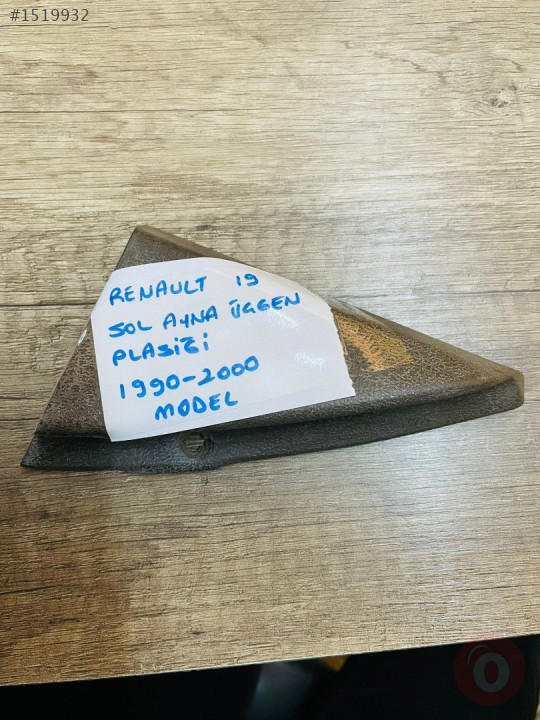 #1519932
RENAULT 19
SOL AYNA ÜGGEN
PLASİĞİ
1990-2000
MODEL